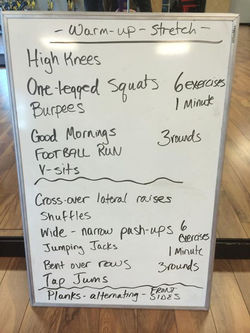 - Warm-up - Stretch -
High Knees
One-legged Squats 6 exercises
Burpees 1 Minute
Good Mornings 3 rounds
FOOTBALL RUN
V-sits
Cross-over lateral raises
Shuffles
Wide - narrow push-ups 6 exercises
Jumping Jacks 1 Minute
Bent over rows 3 rounds
Tap Jums
Planks - alternating - FRONT SIDES